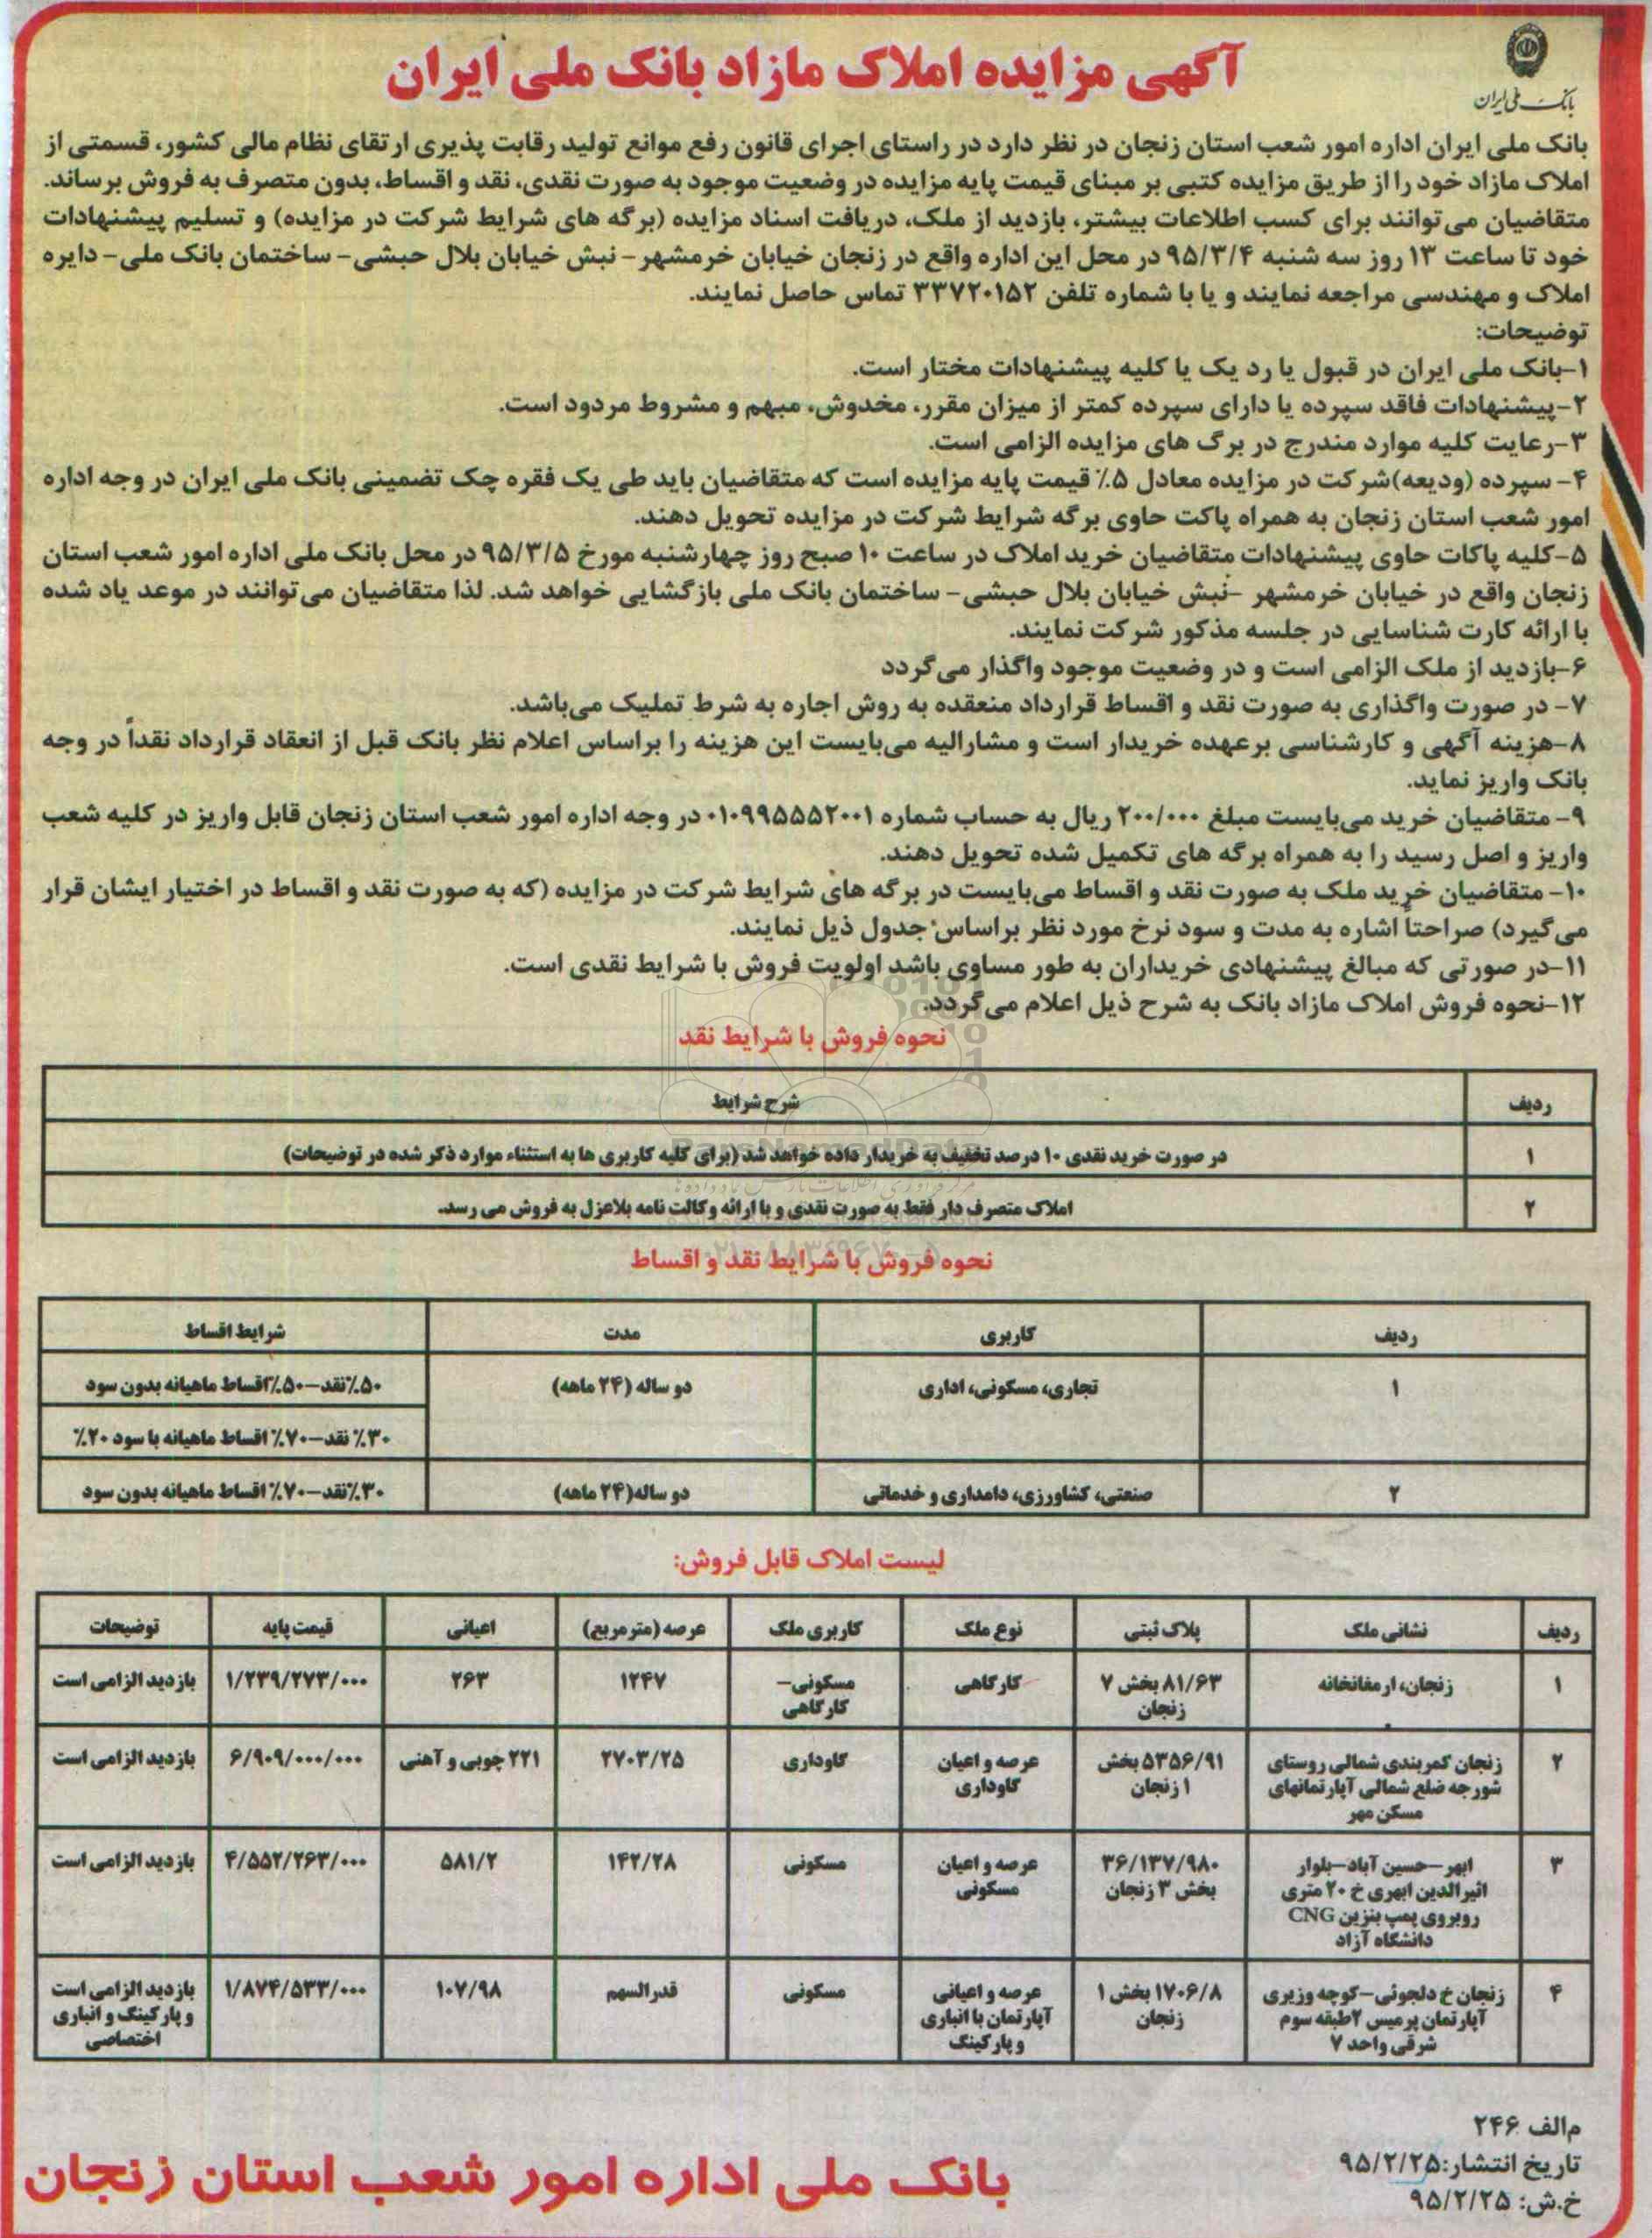 بانک ملی ایران
آگهی مزایده املاک مازاد بانک ملی ایران
بانک ملی ایران اداره امور شعب استان زنجان در نظر دارد در راستای اجرای قانون رفع موانع تولید رقابت پذیری ارتقای نظام مالی کشور، قسمتی از
املاک مازاد خود را از طریق مزایده کتبی بر مبنای قیمت پایه مزایده در وضعیت موجود به صورت نقدی، نقد و اقساط، بدون متصرف به فروش برساند.
متقاضیان می‌توانند برای کسب اطلاعات بیشتر، بازدید از ملک، دریافت اسناد مزایده (برگه های شرایط شرکت در مزایده) و تسلیم پیشنهادات
خود تا ساعت ۱۳ روز سه شنبه ۹۵/۳/۴ در محل این اداره واقع در زنجان خیابان خرمشهر- نبش خیابان بلال حبشی- ساختمان بانک ملی- دایره
املاک و مهندسی مراجعه نمایند و یا با شماره تلفن ۳۳۷۲۰۱۵۲ تماس حاصل نمایند.
توضیحات:
۱-بانک ملی ایران در قبول یا رد یک یا کلیه پیشنهادات مختار است.
۲-پیشنهادات فاقد سپرده یا دارای سپرده کمتر از میزان مقرر، مخدوش، مبهم و مشروط مردود است.
۳-رعایت کلیه موارد مندرج در برگ های مزایده الزامی است.
۴- سپرده (ودیعه)شرکت در مزایده معادل ۵٪ قیمت پایه مزایده است که متقاضیان باید طی یک فقره چک تضمینی بانک ملی ایران در وجه اداره
امور شعب استان زنجان به همراه پاکت حاوی برگه شرایط شرکت در مزایده تحویل دهند.
۵-کلیه پاکات حاوی پیشنهادات متقاضیان خرید املاک در ساعت ۱۰ صبح روز چهارشنبه مورخ ۹۵/۳/۵ در محل بانک ملی اداره امور شعب استان
زنجان واقع در خیابان خرمشهر -نبش خیابان بلال حبشی- ساختمان بانک ملی بازگشایی خواهد شد. لذا متقاضیان می‌توانند در موعد یاد شده
با ارائه کارت شناسایی در جلسه مذکور شرکت نمایند.
۶-بازدید از ملک الزامی است و در وضعیت موجود واگذار می‌گردد
۷- در صورت واگذاری به صورت نقد و اقساط قرارداد منعقده به روش اجاره به شرط تملیک می‌باشد.
۸-هزینه آگهی و کارشناسی برعهده خریدار است و مشارالیه می‌بایست این هزینه را براساس اعلام نظر بانک قبل از انعقاد قرارداد نقداً در وجه
بانک واریز نماید.
۹- متقاضیان خرید می‌بایست مبلغ ۲۰۰/۰۰۰ ریال به حساب شماره ۰۱۰۹۹۵۵۵۲۰۰۱ در وجه اداره امور شعب استان زنجان قابل واریز در کلیه شعب
واریز و اصل رسید را به همراه برگه های تکمیل شده تحویل دهند.
۱۰- متقاضیان خرید ملک به صورت نقد و اقساط می‌بایست در برگه های شرایط شرکت در مزایده (که به صورت نقد و اقساط در اختیار ایشان قرار
می‌گیرد) صراحتاً اشاره به مدت و سود نرخ مورد نظر براساس جدول ذیل نمایند.
۱۱-در صورتی که مبالغ پیشنهادی خریداران به طور مساوی باشد اولویت فروش با شرایط نقدی است.
۱۲-نحوه فروش املاک مازاد بانک به شرح ذیل اعلام می‌گردد.
نحوه فروش با شرایط نقد
ردیف شرح شرایط
۱ در صورت خرید نقدی ۱۰ درصد تخفیف به خریدار داده خواهد شد (برای کلیه کاربری ها به استثناء موارد ذکر شده در توضیحات)
ParsNamadData
۲ املاک متصرف دار فقط به صورت نقدی و با ارائه وکالت نامه بلاعزل به فروش می رسد.
۰۲۱-۸۸۳۴۹۶۷۰-۵
نحوه فروش با شرایط نقد و اقساط
ردیف کاربری مدت شرایط اقساط
۱ تجاری، مسکونی، اداری دو ساله (۲۴ ماهه) ۵۰٪نقد-۵۰٪اقساط ماهیانه بدون سود
۳۰٪ نقد-۷۰٪ اقساط ماهیانه با سود ۲۰٪
۲ صنعتی، کشاورزی، دامداری و خدماتی دو ساله(۲۴ ماهه) ۳۰٪نقد-۷۰٪ اقساط ماهیانه بدون سود
لیست املاک قابل فروش:
ردیف نشانی ملک پلاک ثبتی نوع ملک کاربری ملک عرصه (مترمربع) اعیانی قیمت پایه توضیحات
۱ زنجان، ارمغانخانه ۸۱/۶۳ بخش ۷ کارگاهی مسکونی- ۱۲۴۷ ۲۶۳ ۱/۲۳۹/۲۷۳/۰۰۰ بازدید الزامی است
زنجان کارگاهی
۲ زنجان کمربندی شمالی روستای ۵۳۵۶/۹۱ بخش عرصه و اعیان گاوداری ۲۷۰۳/۲۵ ۲۲۱ چوبی و آهنی ۶/۹۰۹/۰۰۰/۰۰۰ بازدید الزامی است
شورجه ضلع شمالی آپارتمانهای ۱ زنجان گاوداری
مسکن مهر
۳ ابهر-حسین آباد-بلوار ۳۶/۱۳۷/۹۸۰ عرصه و اعیان مسکونی ۱۴۲/۲۸ ۵۸۱/۲ ۴/۵۵۲/۲۶۳/۰۰۰ بازدید الزامی است
اثیرالدین ابهری خ ۲۰ متری بخش ۳ زنجان مسکونی
روبروی پمپ بنزین CNG
دانشگاه آزاد
۴ زنجان خ دلجوئی-کوچه وزیری ۱۷۰۶/۸ بخش ۱ عرصه و اعیانی مسکونی قدرالسهم ۱۰۷/۹۸ ۱/۸۷۴/۵۳۳/۰۰۰ بازدید الزامی است
آپارتمان پرمیس ۲طبقه سوم زنجان آپارتمان با انباری و پارکینگ و انباری
شرقی واحد ۷ و پارکینگ اختصاصی
م‌الف ۲۴۶
تاریخ انتشار:۹۵/۲/۲۵
خ.ش: ۹۵/۲/۲۵
بانک ملی اداره امور شعب استان زنجان